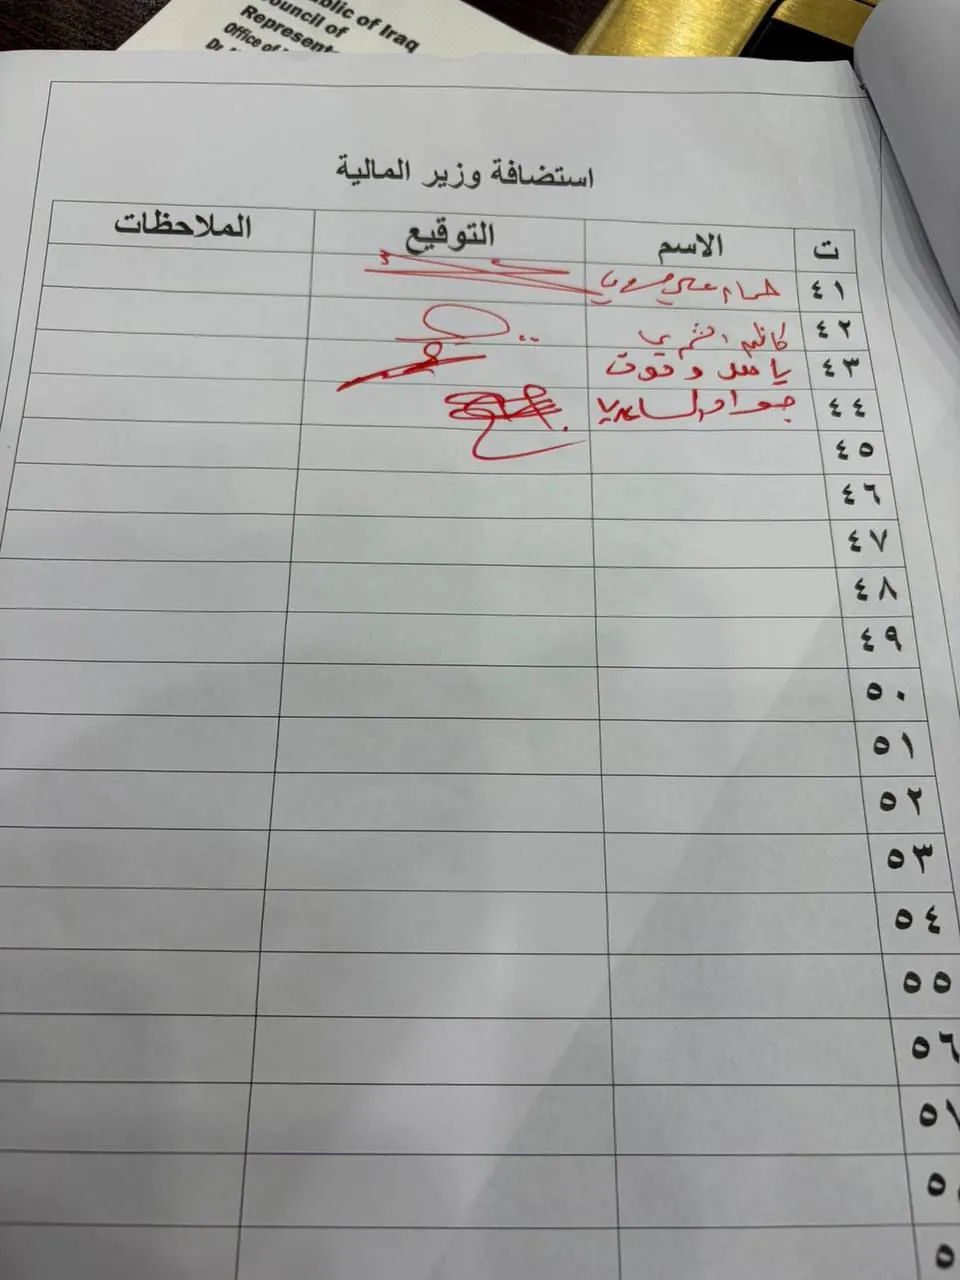 blic of Iraq
ouncil of
Represent
Office of
Dr.
استضافة وزير المالية
ت الاسم التوقيع الملاحظات
٤١
٤٢ كاظم الشمري
٤٣ ياسر وتوت
٤٤ جواد الساعدي
٤٥
٤٦
٤٧
٤٨
٤٩
٥٠
٥١
٥٢
٥٣
٥٤
٥٥
٥٦
٥٧
٥
٥